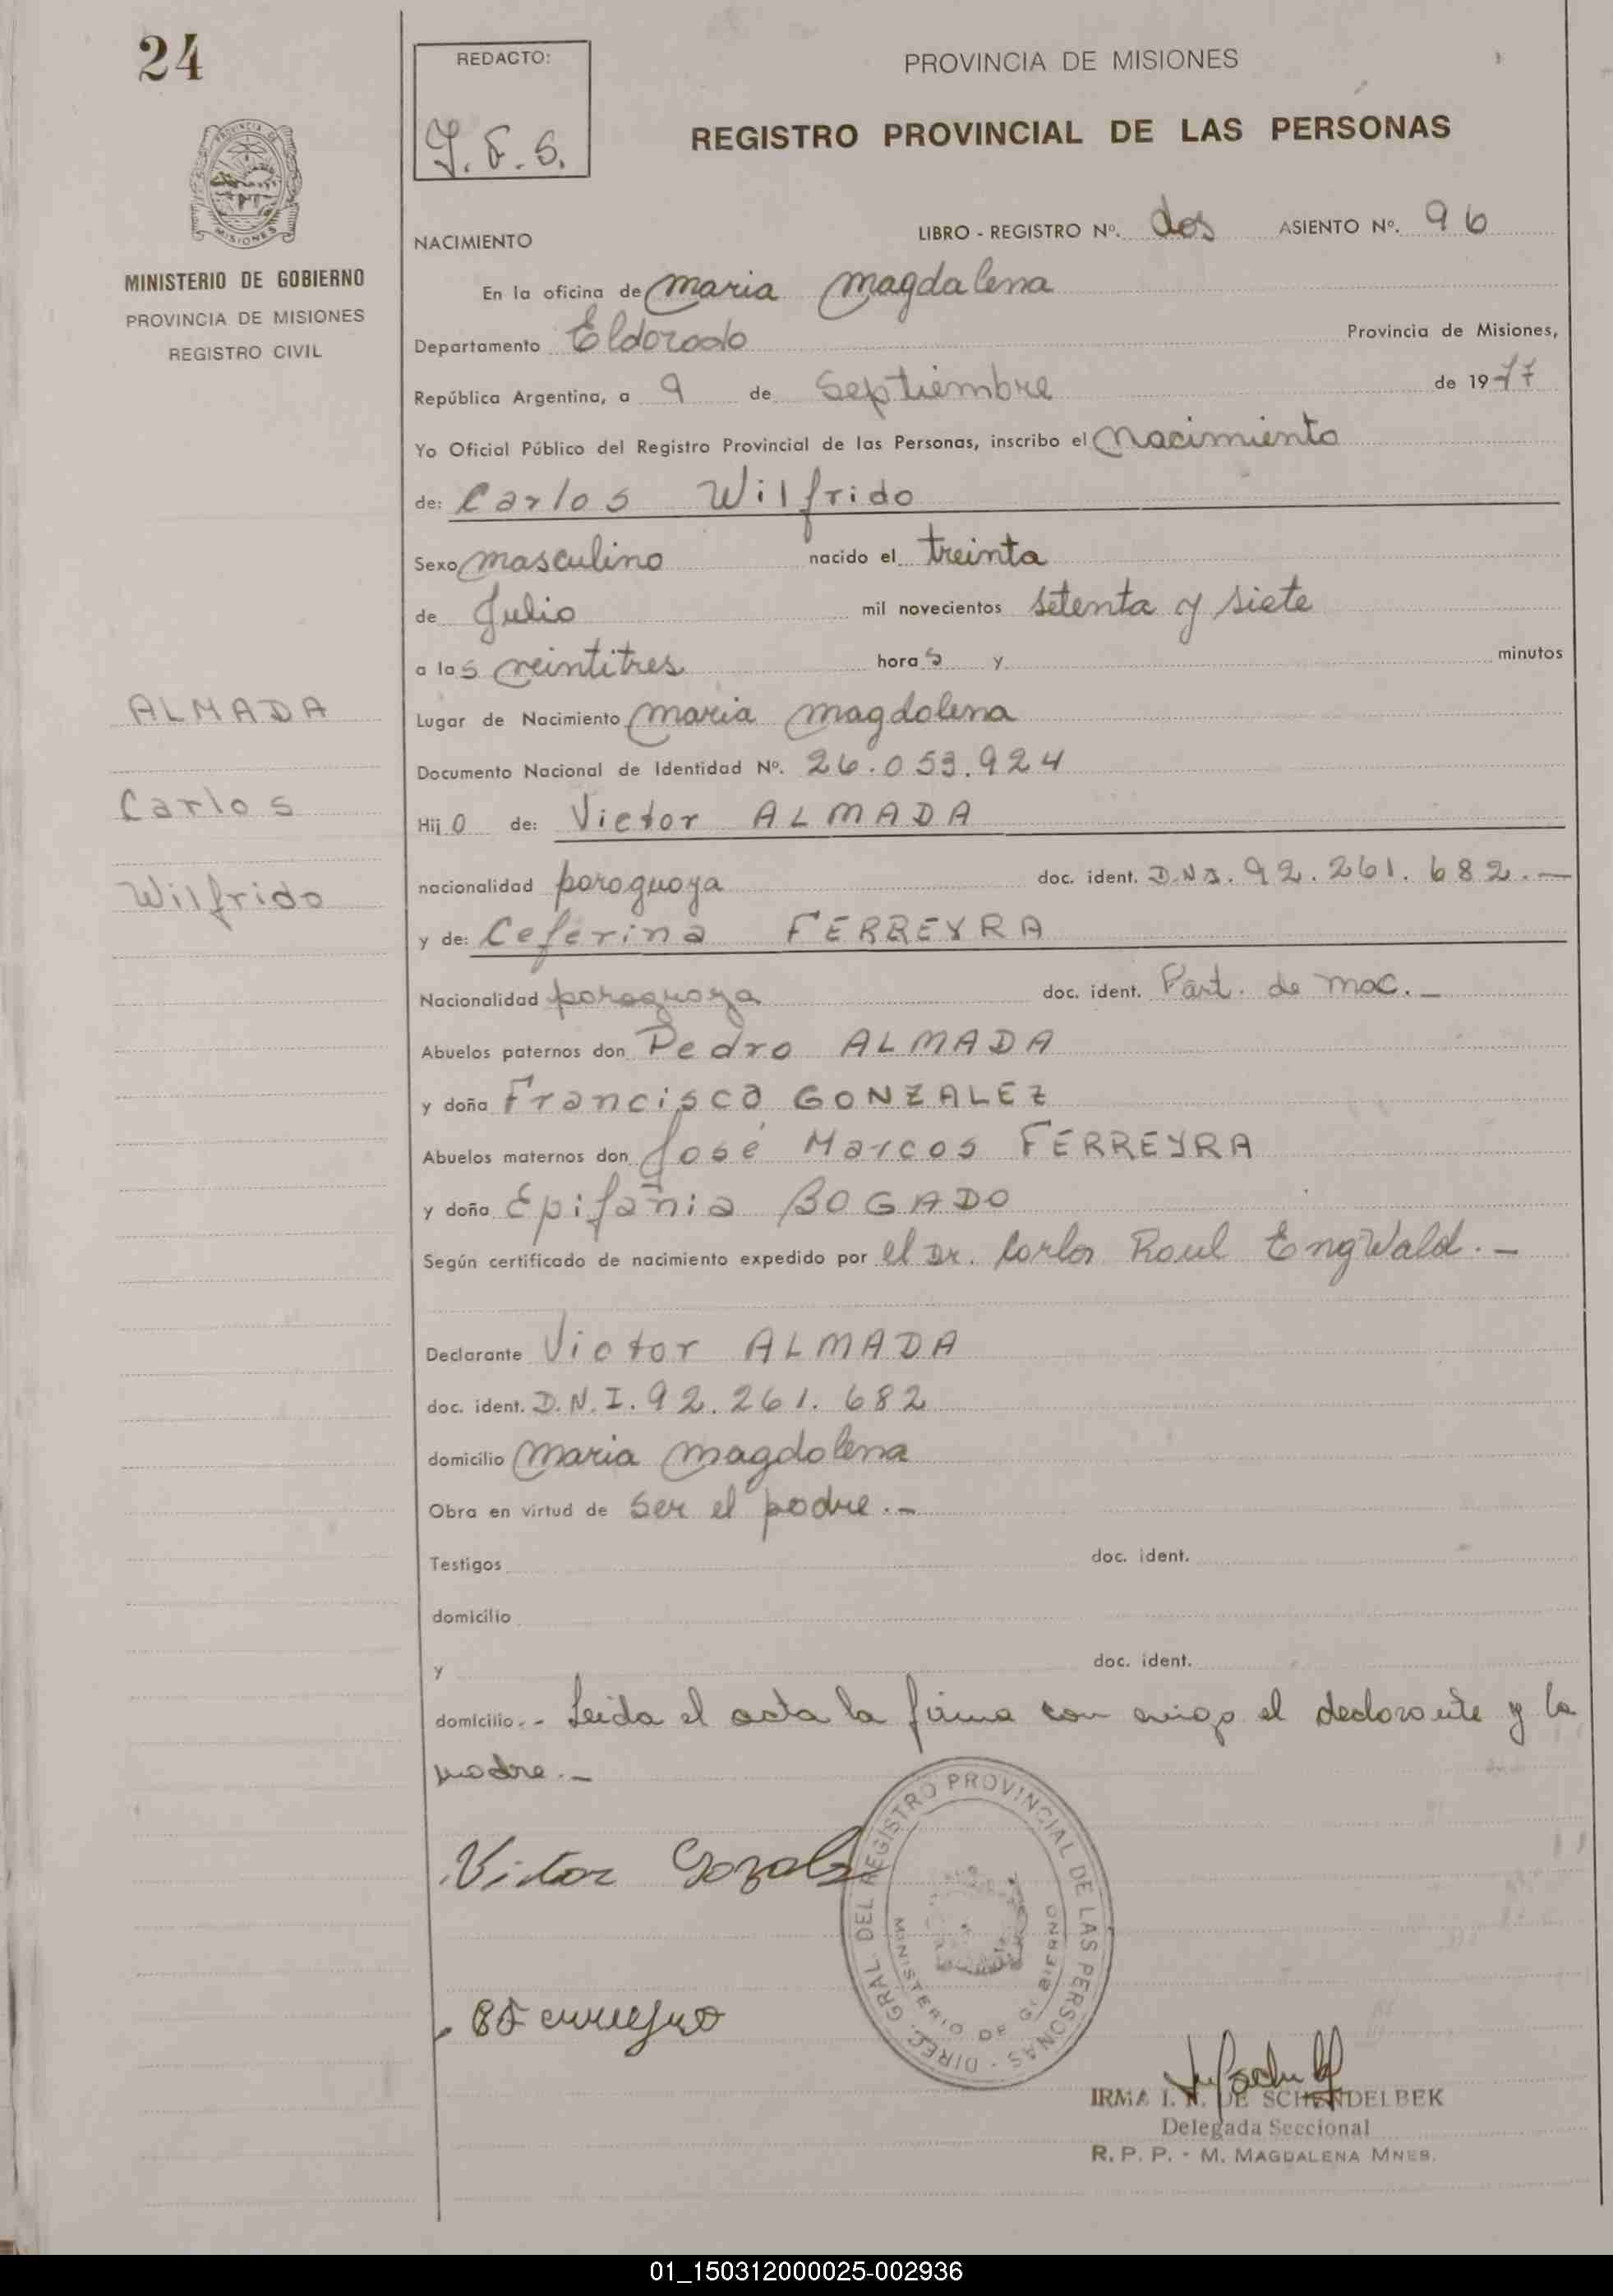 24
REDACTO:
J. F. S.
PROVINCIA DE MISIONES
REGISTRO PROVINCIAL DE LAS PERSONAS
PROVINCIA DE
MISIONES
MINISTERIO DE GOBIERNO
PROVINCIA DE MISIONES
REGISTRO CIVIL
NACIMIENTO
LIBRO - REGISTRO Nº. dos ASIENTO Nº. 96
En la oficina de Maria Magdalena
Departamento Eldorado Provincia de Misiones,
República Argentina, a 9 de Septiembre de 1977
Yo Oficial Público del Registro Provincial de las Personas, inscribo el Nacimiento
de: Carlos Wilfrido
Sexo masculino nacido el treinta
de Julio mil novecientos setenta y siete
a las veintitres horas y minutos
Lugar de Nacimiento Maria Magdalena
Documento Nacional de Identidad Nº. 26.059.924
Hijo de: Victor ALMADA
nacionalidad paraguaya doc. ident. D.N.I. 92.261.682.-
y de: Ceferina FERREYRA
Nacionalidad paraguaya doc. ident. Part. de Nac.-
Abuelos paternos don Pedro ALMADA
y doña Francisca GONZALEZ
Abuelos maternos don José Marcos FERREYRA
y doña Epifañia BOGADO
Según certificado de nacimiento expedido por el Dr. Carlos Raul Engwald.-
Declarante Victor ALMADA
doc. ident. D.N.I. 92.261.682
domicilio Maria Magdalena
Obra en virtud de ser el padre.-
Testigos doc. ident.
domicilio
y doc. ident.
domicilio.- Leida el acta la firma con migo el declarante y la
madre.-
ALMADA
Carlos
Wilfrido
Victor
DIREC. GRAL. DEL REGISTRO PROVINCIAL DE LAS PERSONAS -
MINISTERIO DE GOBIERNO
IRMA I. N. DE SCHENDELBEK
Delegada Seccional
R. P. P. - M. MAGDALENA MNES.
01_150312000025-002936